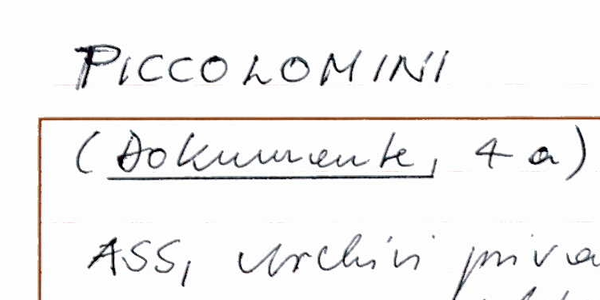 PICCOLOMINI
(Dokumente, 4a)
ASS, Archivi priva